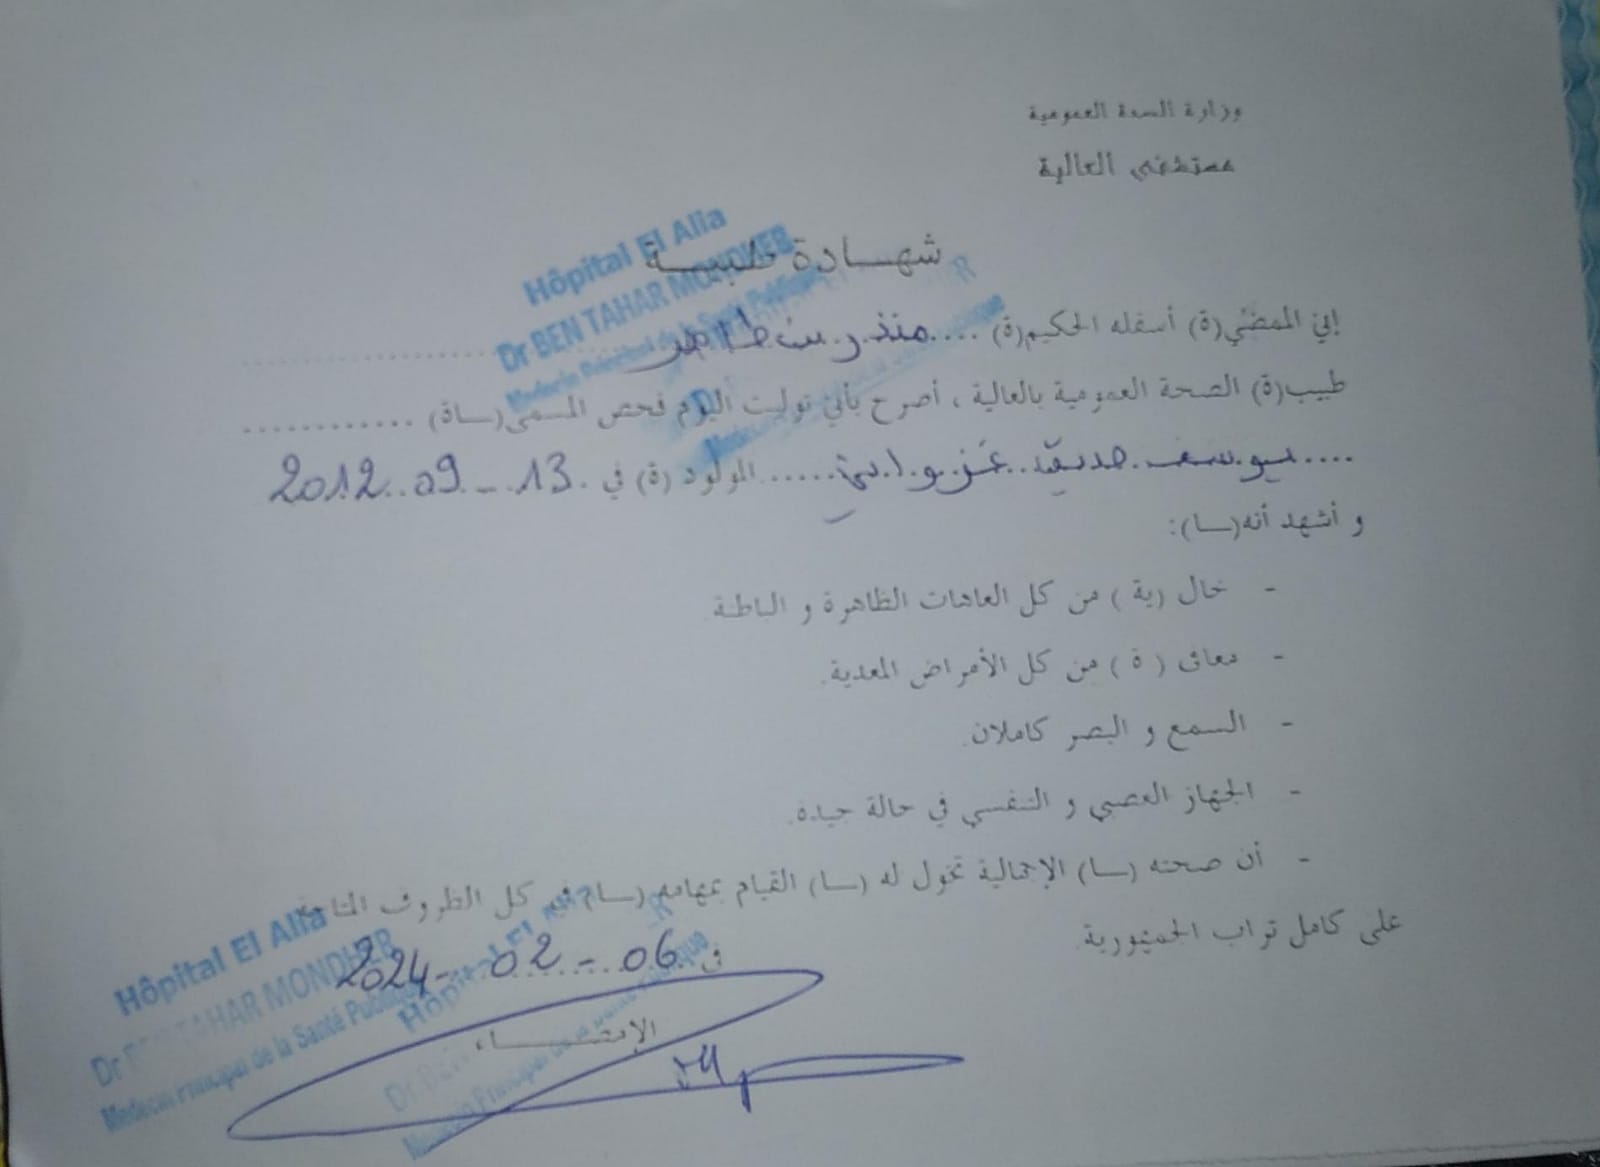 وزارة الصحة العمومية
مستشفى العالية
شهـــادة طبيـــة
Hôpital El Alia
Dr BEN TAHAR MONDHER
Medecin Principal de la Santé Publique
إني الممضي(ة) أسفله الحكيم(ة) .... منذر بن طاهر ....................
طبيب(ة) الصحة العمومية بالعالية ، أصرح بأني توليت اليوم فحص المسمى(ـاة) ............
.... يوسف ... غزواني ...... المولود (ة) في 13 - 09 .. 2012
و أشهد أنه(ـا):
- خال (ية ) من كل العاهات الظاهرة و الباطنة.
- معافى ( ة ) من كل الأمراض المعدية.
- السمع و البصر كاملان.
- الجهاز العصبي و التنفسي في حالة جيدة.
- أن صحته (ـا) الإجمالية تخول له (ـا) القيام بمهامه (ـا) في كل الظروف المناخية
على كامل تراب الجمهورية.
في 06 - 02 - 2024
الإمضـــــاء
Hôpital El Alia
Dr BEN TAHAR MONDHER
Medecin Principal de la Santé Publique